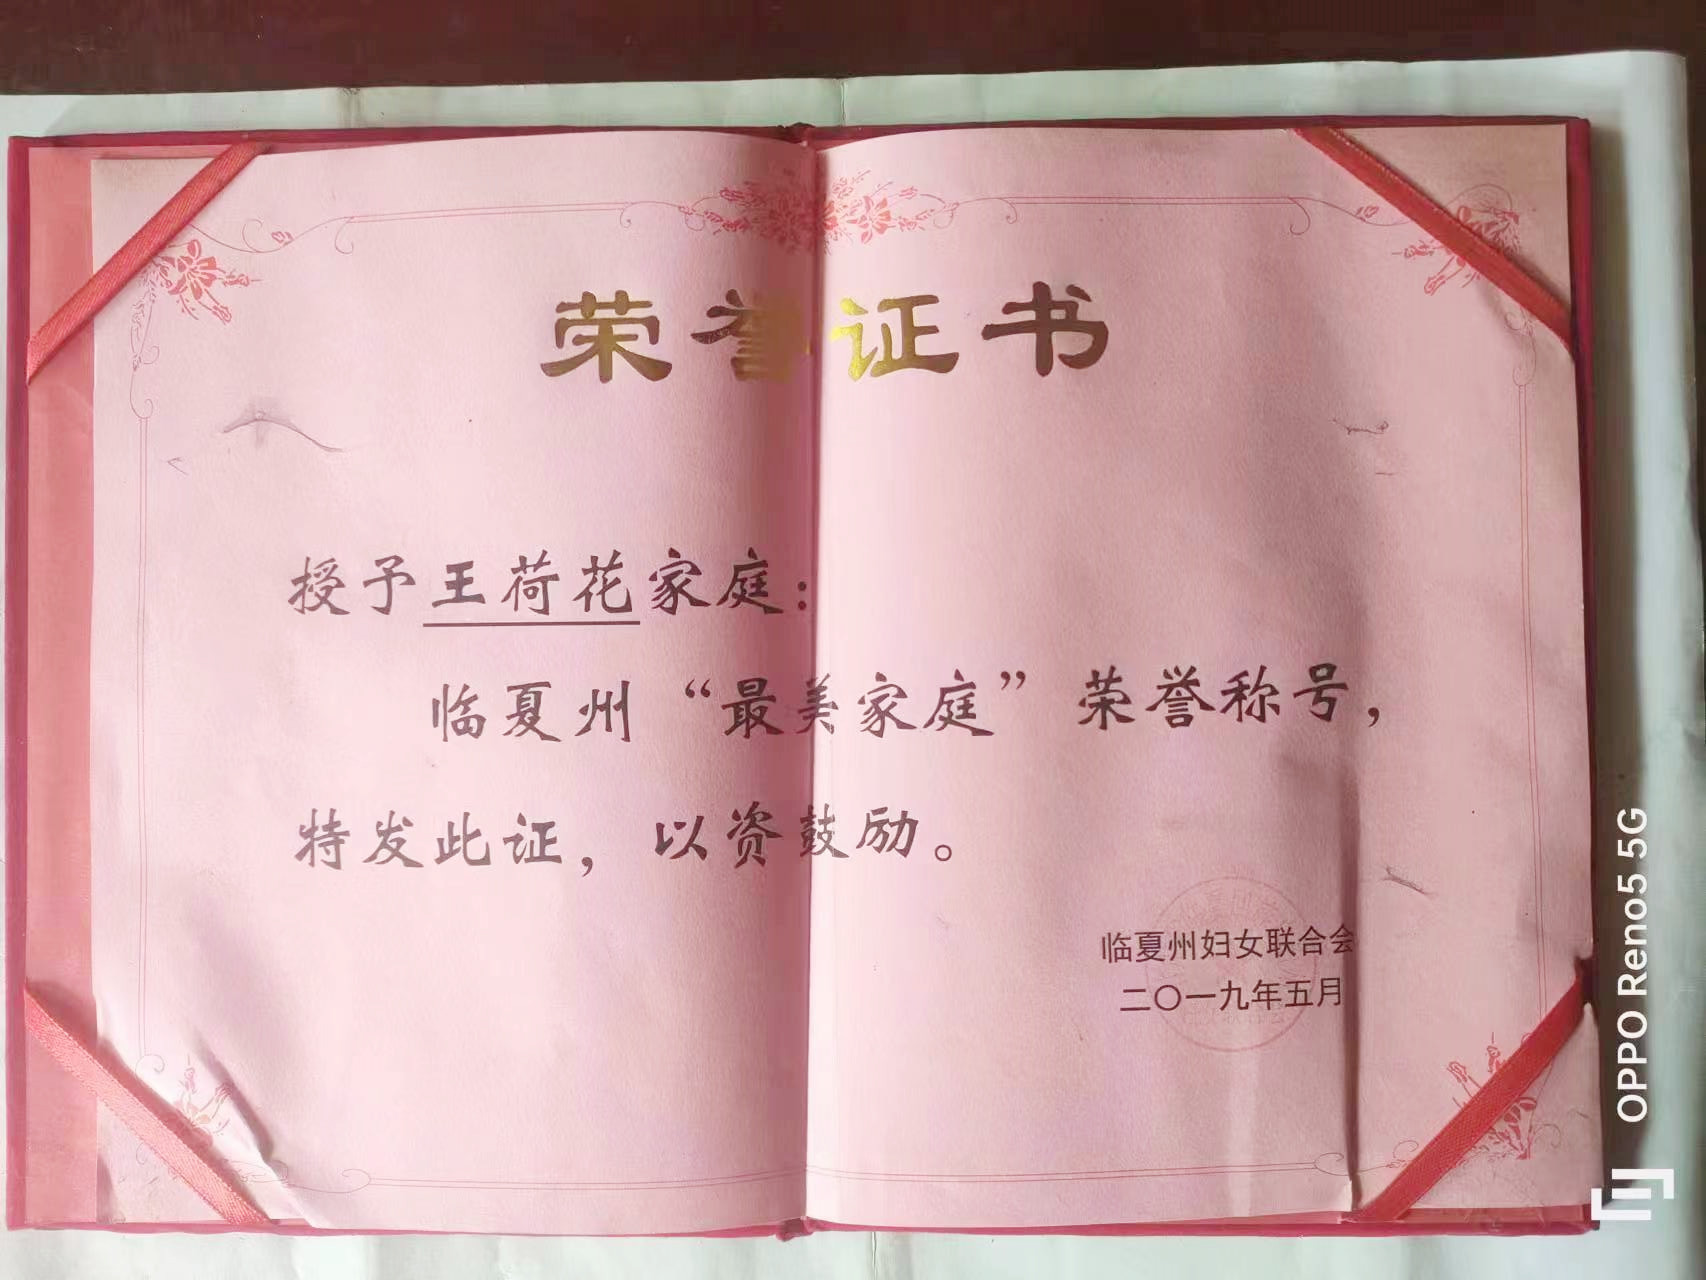 荣誉证书
授予王荷花家庭：
临夏州“最美家庭”荣誉称号，
特发此证，以资鼓励。
临夏州妇女联合会
二〇一九年五月
OPPO Reno5 5G